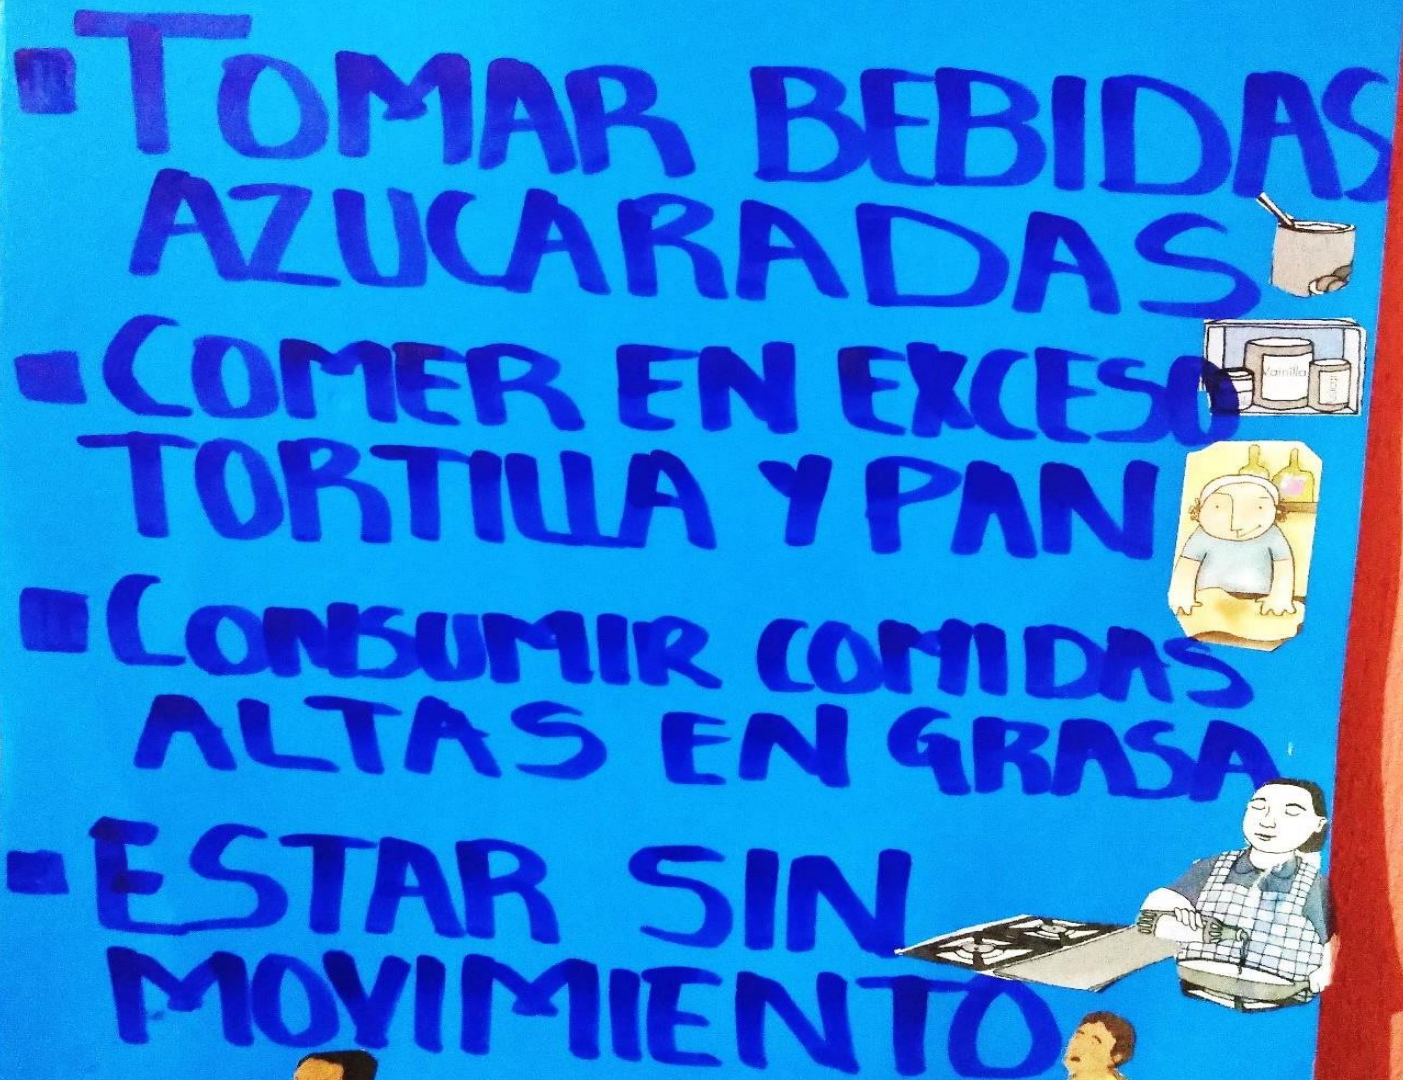 ▪ TOMAR BEBIDAS
AZUCARADAS
▪ COMER EN EXCESO
Vainilla
TORTILLA Y PAN
▪ CONSUMIR COMIDAS
ALTAS EN GRASA
▪ ESTAR SIN
MOVIMIENTO